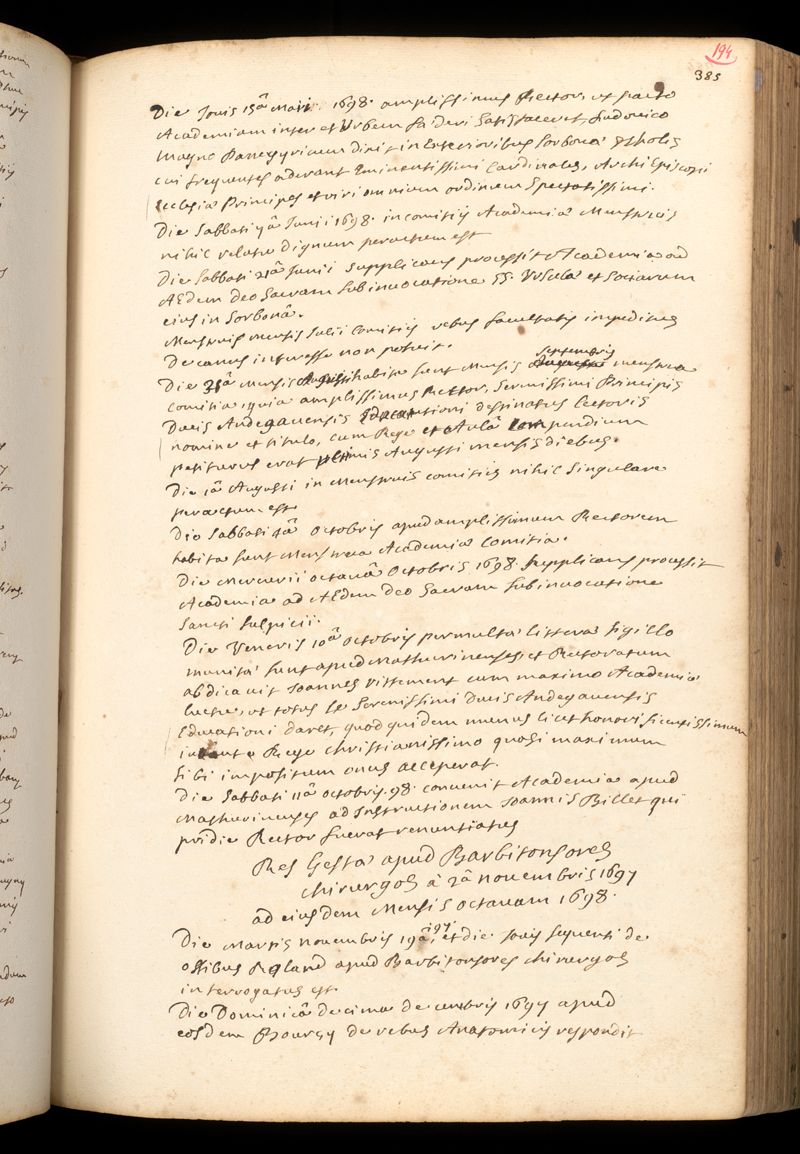 194
385
Die Jovis 15â Maii 1698. amplissimus Rector, ut pacto
Academiam inter et Urbem fœderi satisfaceret, Ludovico
magno Panegyricum dixit in exterioribus Sorbonæ Scholis
cui frequentes aderant Eminentissimi Cardinales, Archiepiscopi
Ecclesiæ Principes et viri omnium ordinum spectatissimi.
Die Sabbati 7â Junii 1698. in comitiis Academiæ Menstruis
nihil relatu dignum peractum est
Die Sabbati 21â Junii supplicans processit Academia ad
Ædem Deo Sacram sub invocatione SS. Ursulæ et sociarum
ejus in Sorbonâ.
Menstruis mensis Julii Comitiis rebus facultatis impeditus
Decanus interesse non potuit.
Die mensis Augusti habita sunt Mensis Septembris menstrua
Comitia, quia amplissimus Rector, Serenissimi Principis
Ducis Andegavensis Educationi destinatus Lectoris
nomine et titulo, cum Rege et Aulâ Compendium
petiturus erat ultimis Augusti mensis diebus.
Die 1â Augusti in Menstruis comitiis nihil singulare
peractum est
Die Sabbati 4â Octobris apud amplissimum Rectorem
habita sunt Menstrua Academiæ Comitia.
Die Mercurii octavâ Octobris 1698. supplicans processit
Academia ad Ædem Deo Sacram sub invocatione
Sancti Sulpicii.
Die Veneris 10â Octobris permultæ litteræ sigillo
munitæ sunt apud Mathurinenses, et Rectoratum
abdicavit Joannes Vittement cum maximo Academiæ
luctu, ut totus se Serenissimi Ducis Andegavensis
Educationi daret, quod quidem munus licet honorificentissimum
a Rege Christianissimo quasi maximum
sibi impositum onus acceperat.
Die Sabbati 11â Octobris 98. convenit Academia apud
Mathurinenses ad Instructionem Joannis Billet qui
pridie Rector fuerat renuntiatus
Res Gestæ apud Barbitonsores
Chirurgos â 2â novembris 1697
ad ejusdem Mensis octavam 1698.
Die Martis novembris 19â 97. et die Jovis sequenti de
ossibus apud Barbitonsores chirurgos
interrogatus est
Die Dominicâ decima decembris 1697 apud
eosdem de rebus Anatomicis respondit